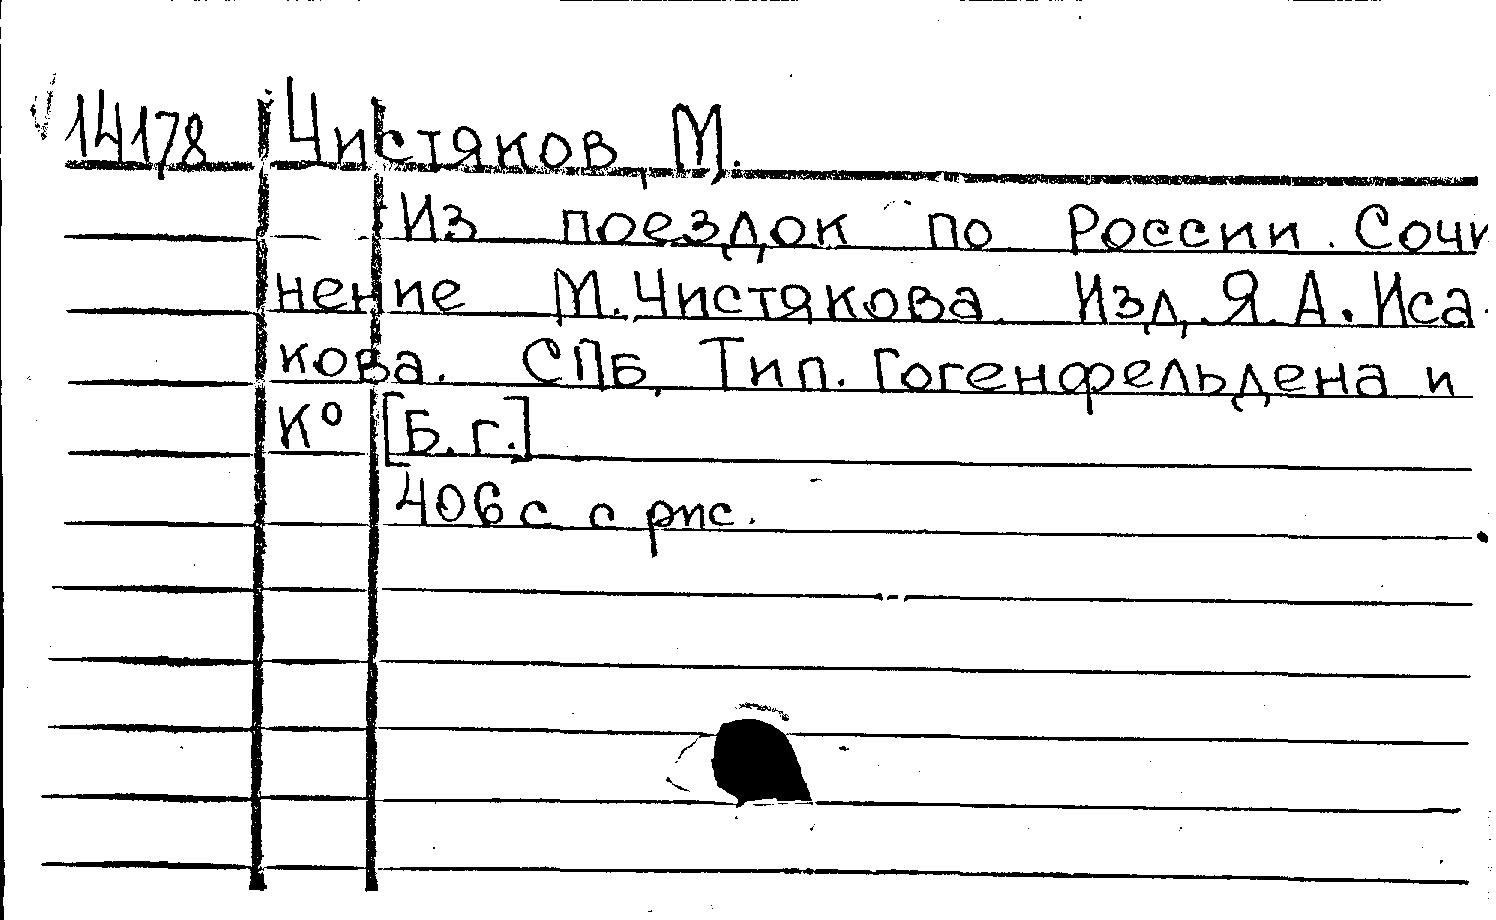 14178 Чистяков, М.
Из поездок по России. Сочи
нение М. Чистякова. Изд. Я. А. Иса-
кова. СПБ, Тип. Гогенфельдена и
К° [Б. г.]
406 с с рис.